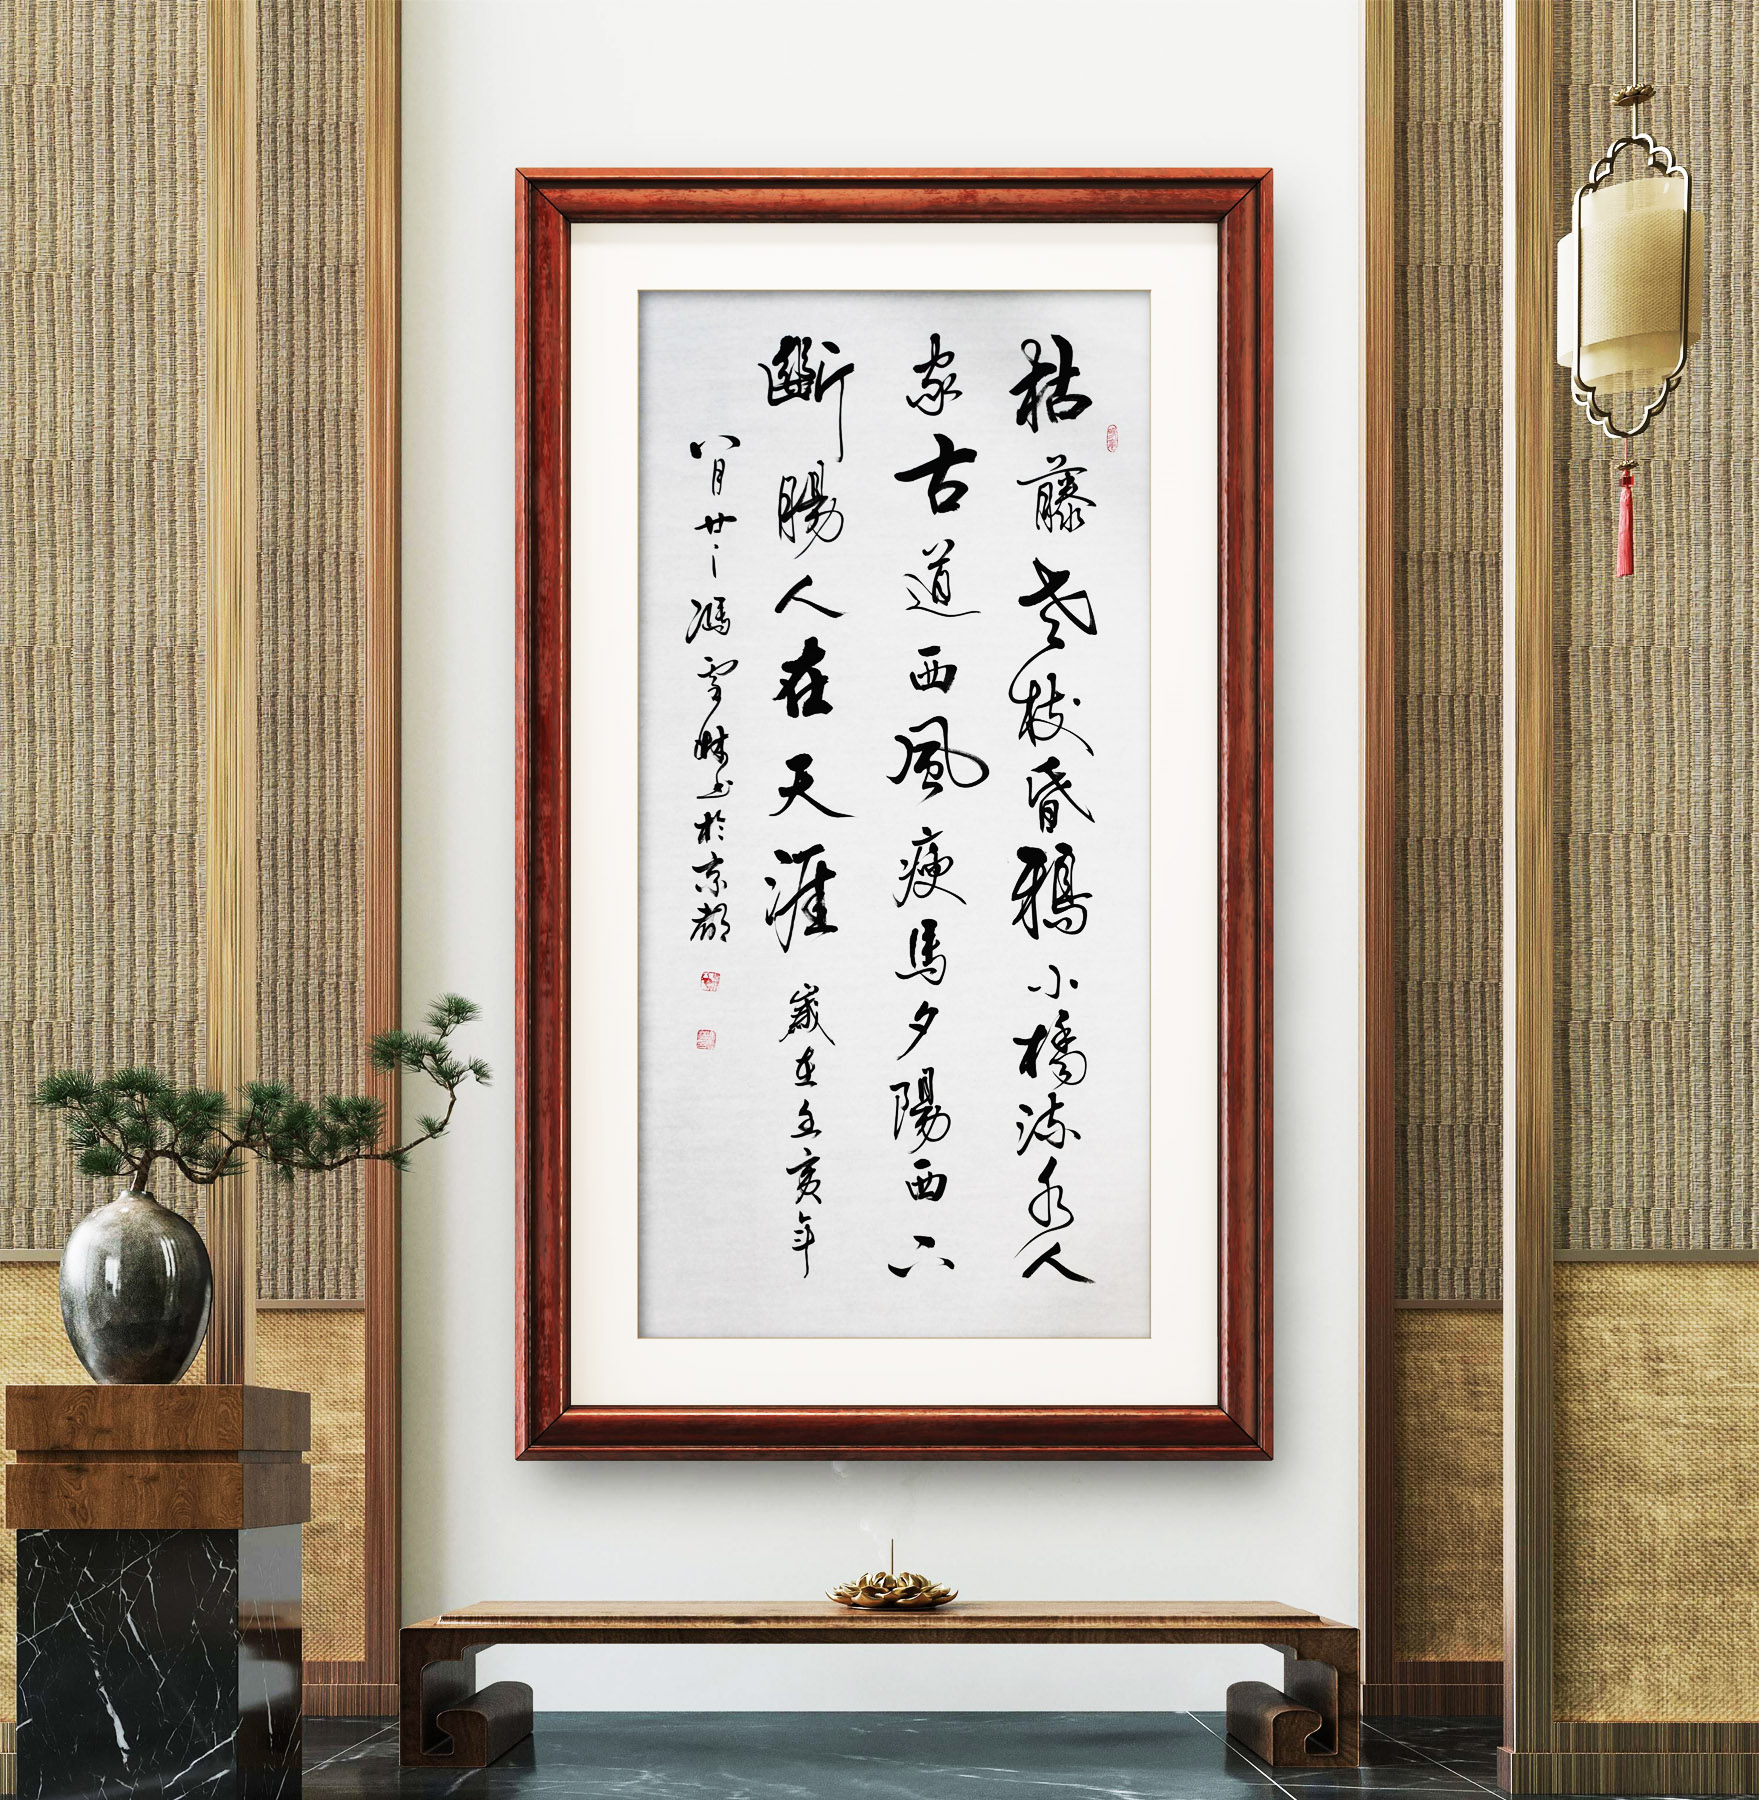 枯藤老枝昏鴉小橋流水人
家古道西風瘦馬夕陽西下
斷腸人在天涯 歲在亥年
八月廿二馮雪书於京都